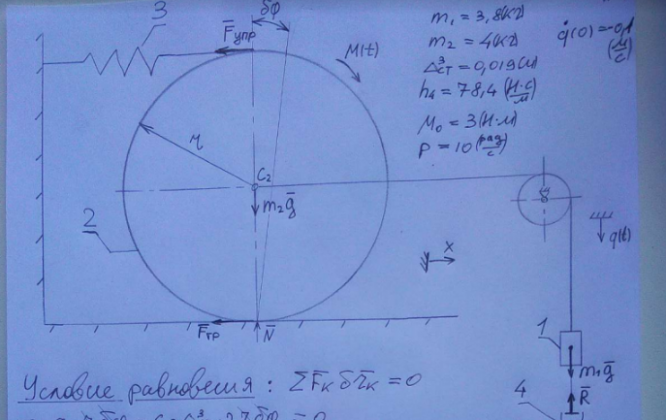 3
F̄упр
δφ
M(t)
m₁ = 3,8(кг)
m₂ = 4(кг)
Δ³ст = 0,019(м)
h₄ = 78,4 (Н·с/м)
M₀ = 3(Н·м)
p = 10(рад/с)
q̇(0)=-0,1 (м/с)
r₂
C₂
m₂ḡ
2
8
q(t)
y x
1
m₁ḡ
R̄
4
F̄тр
N̄
Условие равновесия : ΣF̄ₖδr̄ₖ = 0